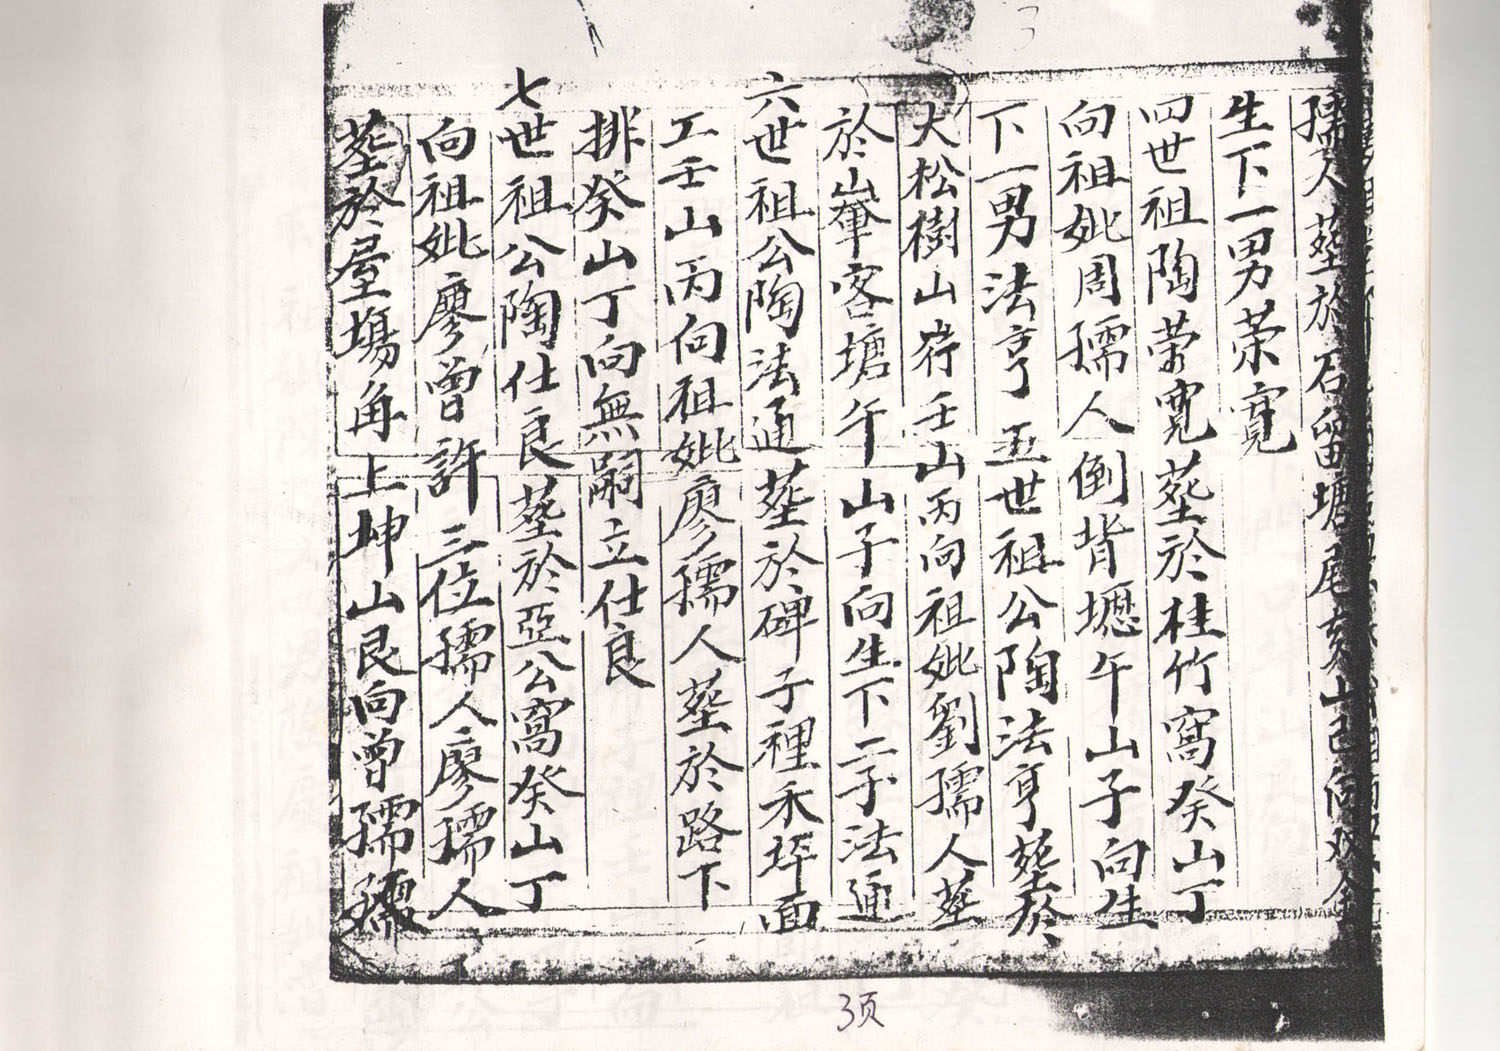 孺人塟於石留塘尾亥山巳向
生下一男荣寛
四世祖陶荣寛塟於桂竹窩癸山丁
向祖妣周孺人倒背壢午山子向生
下一男法亨五世祖公陶法亨塟於
大松樹山 壬山丙向祖妣劉孺人塟
於 客塘午山子向生下二子法通
六世祖公陶法通塟於碑子裡禾坪面
工壬山丙向祖妣廖孺人塟於路下
排癸山丁向無嗣立仕良
七世祖公陶仕良塟於亞公窩癸山丁
向祖妣廖曾許三位孺人廖孺人
塟於屋塲角上坤山艮向曾孺
3页